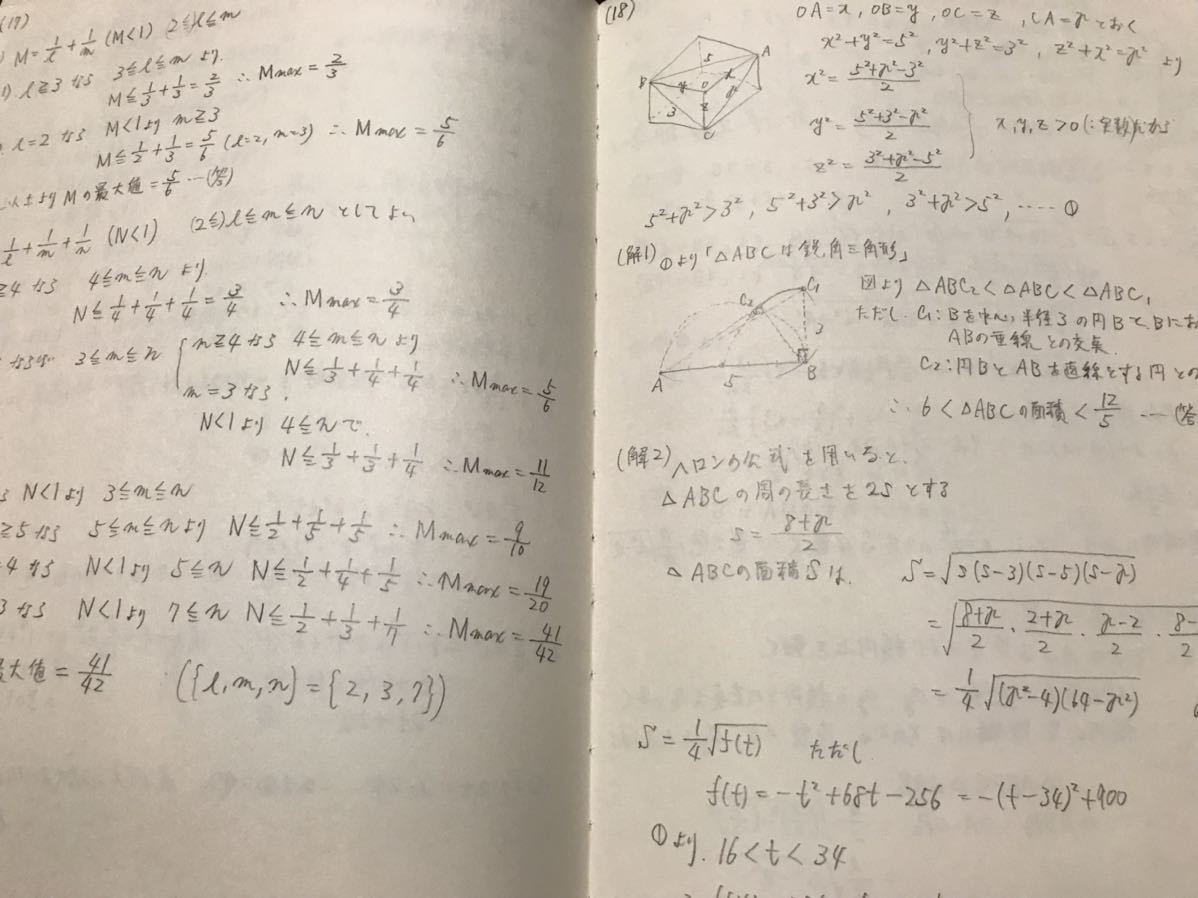 (17)
M=1/l+1/m (M<1) (2≦l≦m
l≧3なら 3≦l≦mより.
M≦1/3+1/3=2/3 ∴Mmax=2/3
l=2なら M<1より m≧3
M≦1/2+1/3=5/6 (l=2, m=3) ∴Mmax=5/6
以上より Mの最大値=5/6 …(答)
1/l+1/m+1/n (N<1) (2≦)l≦m≦n として
≧4なら 4≦m≦nより.
N≦1/4+1/4+1/4=3/4 ∴Mmax=3/4
3≦m≦n
n≧4なら 4≦m≦nより
N≦1/3+1/4+1/4 ∴Mmax=5/6
m=3なら,
N<1より 4≦nで.
N≦1/3+1/3+1/4 ∴Mmax=11/12
N<1より 3≦m≦n
≧5なら 5≦m≦nより N≦1/2+1/5+1/5 ∴Mmax=9/10
4なら N<1より 5≦n N≦1/2+1/4+1/5 ∴Mmax=19/20
3なら N<1より 7≦n N≦1/2+1/3+1/7 ∴Mmax=41/42
最大値=41/42 ({l,m,n}={2,3,7})
(18)
OA=x, OB=y, OC=z, CA=r とおく
x²+y²=5², y²+z²=3², z²+x²=r² より
x²=(5²+r²-3²)/2
y²=(5²+3²-r²)/2
z²=(3²+r²-5²)/2
x,y,z>0(∵実数)だから
A
5
B
y
x
O
r
z
3
C
5²+r²>3², 5²+3²>r², 3²+r²>5², ……①
(解1) ①より「△ABCは鋭角三角形」
図より △ABC₂<△ABC<△ABC₁
ただし C₁:Bを中心,半径3の円Bと,Bにお
ABの垂線との交点.
C₂:円BとABを直線とする円との
∴6<△ABCの面積<12/5 …(答
C₂
C₁
3
A
5
B
(解2) ヘロンの公式を用いると,
△ABCの周の長さを2sとする
s=(8+r)/2
△ABCの面積Sは, S=√(s(s-3)(s-5)(s-r))
=√((8+r)/2・(2+r)/2・(r-2)/2・(8-
=1/4√((r²-4)(64-r²))
S=1/4√f(t) ただし
f(t)=-t²+68t-256=-(t-34)²+900
①より. 16<t<34